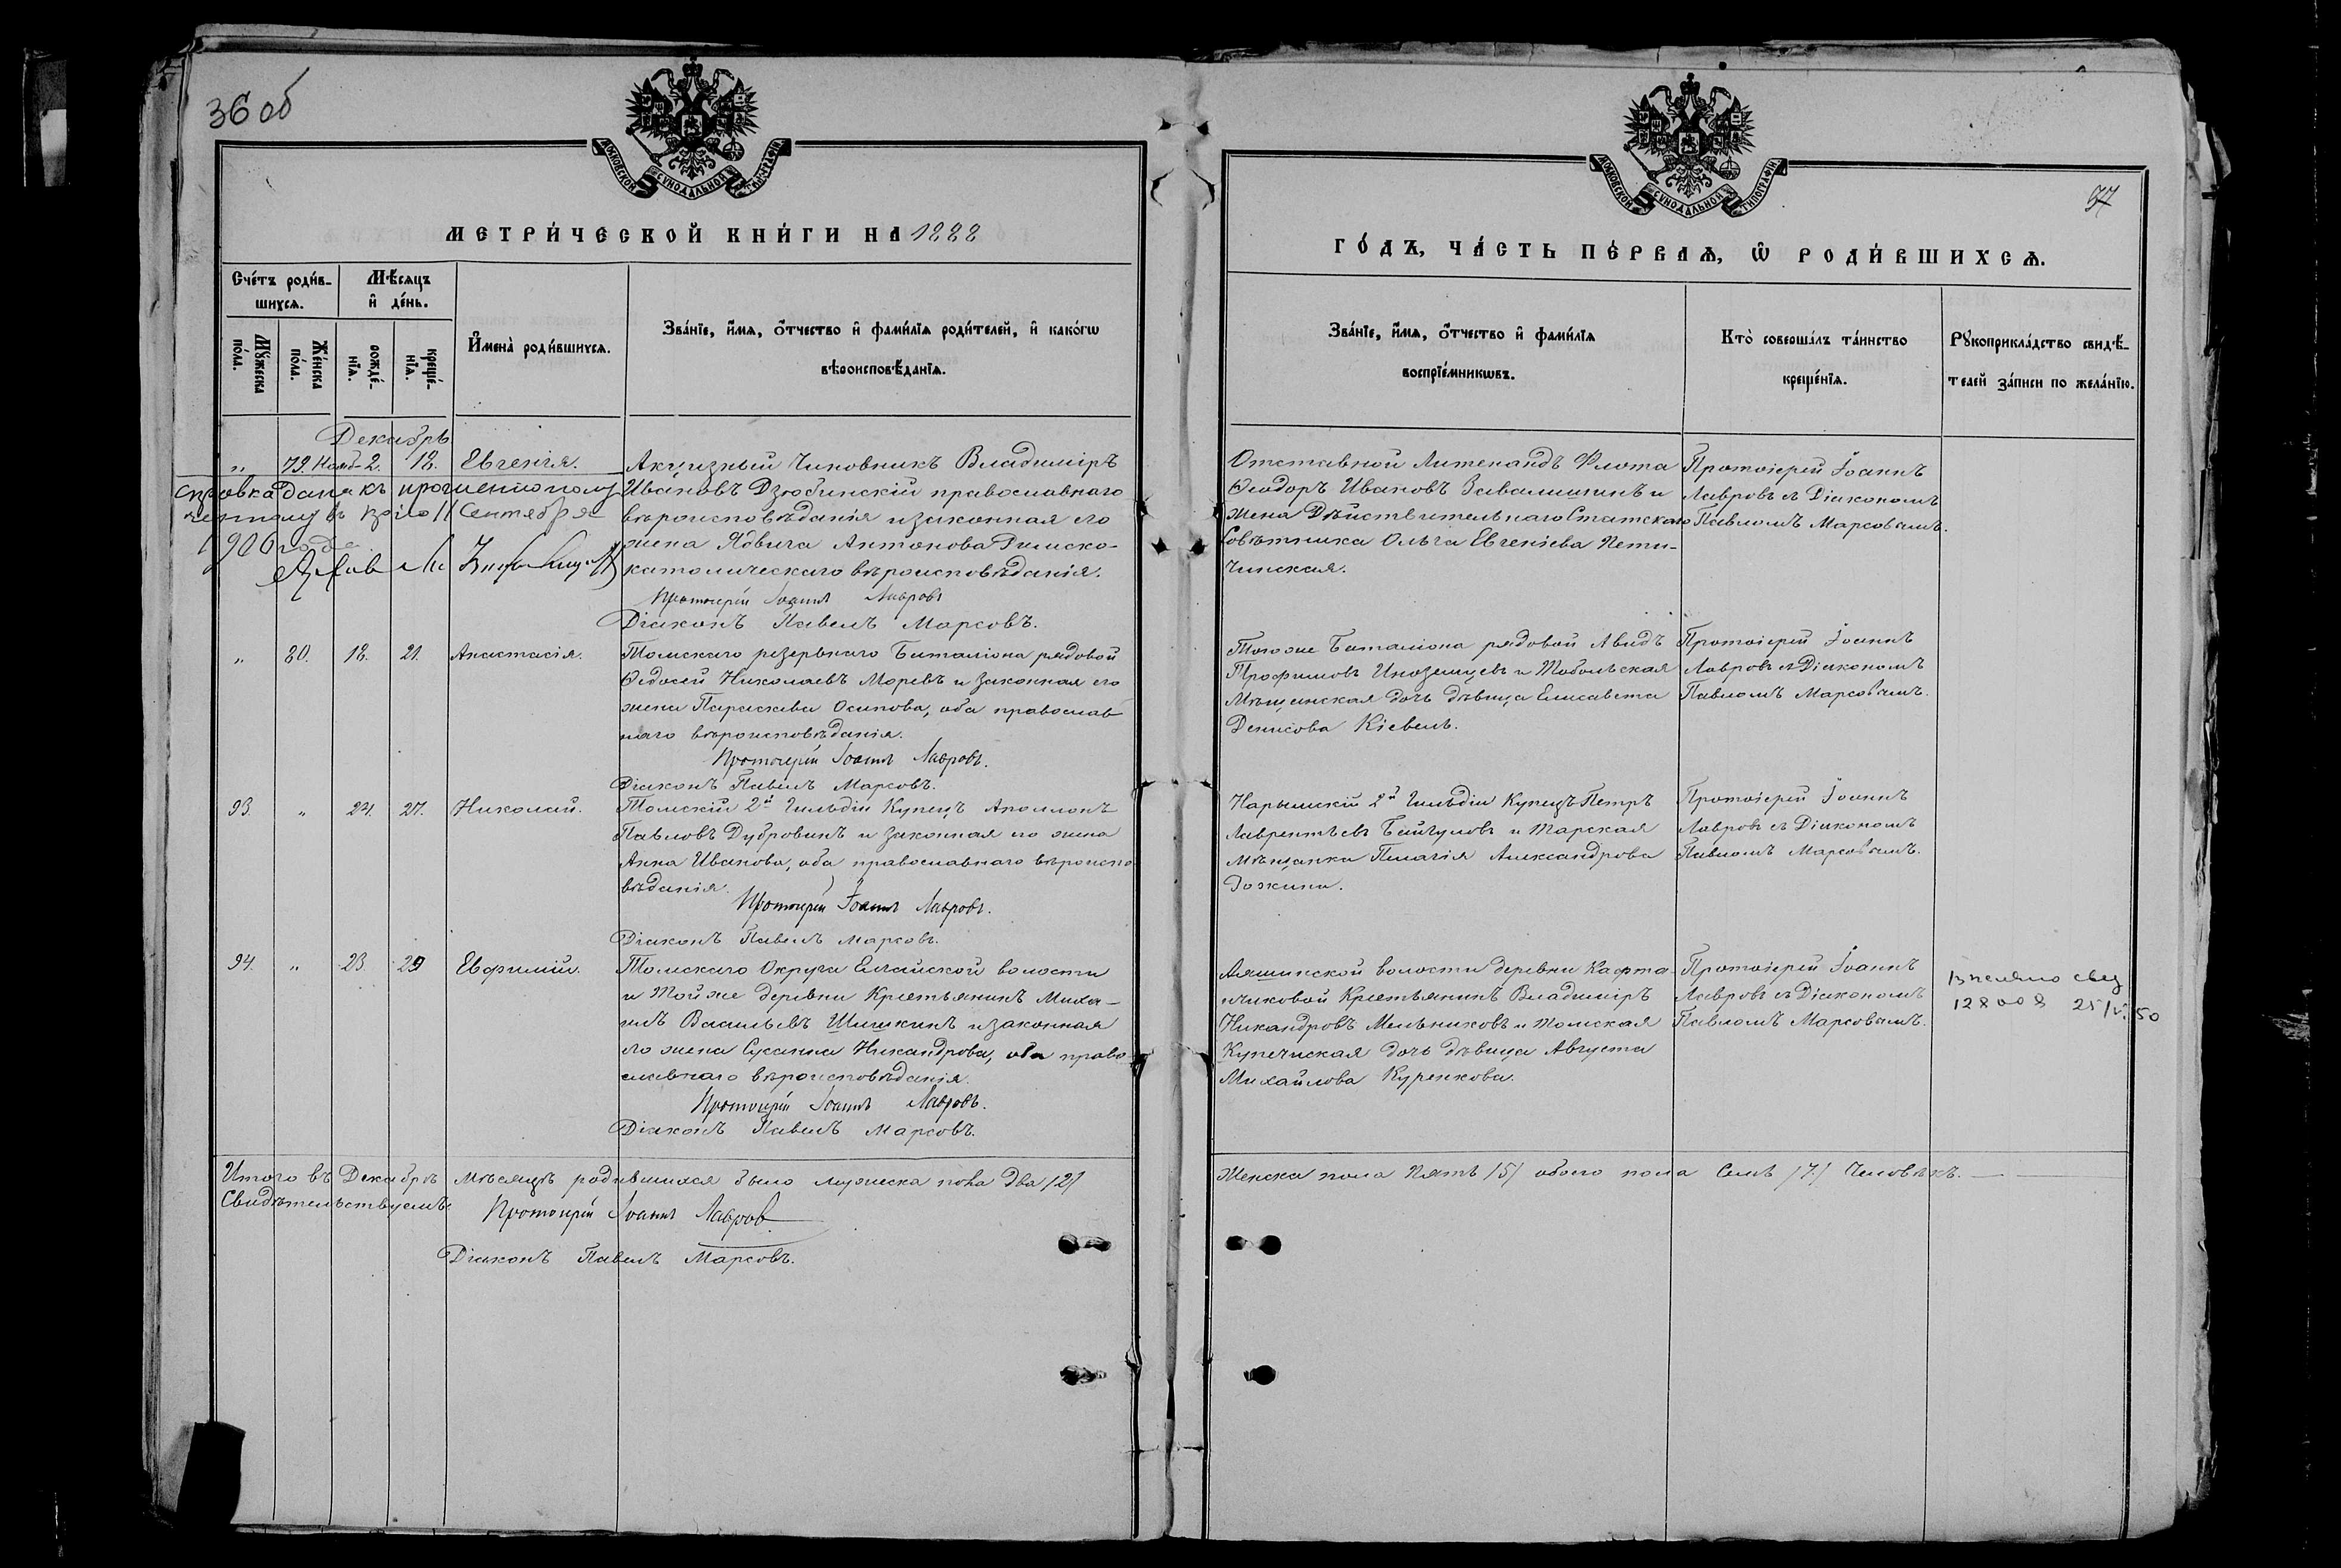 36 об
МОСКОВСКОЙ СУНОДАЛЬНОЙ ТИПОГРАФІИ
МЕТРИ́ЧЕСКОЙ КНИ́ГИ НА 1888
Сче́тъ роди́в-
шихсѧ.
Мѣ́сѧцъ
и҆ де́нь.
Мꙋ́жеска
по́ла.
Же́нска
по́ла.
рожде́-
нїѧ.
креще́-
нїѧ.
И҆мена̀ роди́вшихсѧ.
Зва́нїе, и҆́мѧ, ѻ҆́тчество и҆ фами́лїѧ роди́телей, и҆ како́гѡ
вѣроисповѣ́данїѧ.
Декабрь
„ 79. Нояб-2. 18. Евгенія.
Акцизный Чиновникъ Владиміръ
Ивановъ Дзюбинскій православнаго
вѣроисповѣданія и законная его
жена Ядвига Антонова Римско-
католическаго вѣроисповѣданія.
Протоіерей Іоаннъ Лавровъ
Діаконъ Павелъ Марсовъ.
Справка дана къ прошенію
11 Сентября
1900 года
„ 80. 18. 21. Анастасія.
Томскаго резервнаго Баталіона рядовой
Ѳедосей Николаевъ Моревъ и законная его
жена Параскева Осипова, оба православ
наго вѣроисповѣданія.
Протоіерей Іоаннъ Лавровъ.
Діаконъ Павелъ Марсовъ.
93. „ 24. 27. Николай.
Томскій 2й Гильдіи Купецъ Аполлонъ
Павловъ Дубровинъ и законная его жена
Анна Иванова, оба православнаго вѣроиспо
вѣданія.
Протоіерей Іоаннъ Лавровъ.
Діаконъ Павелъ Марсовъ.
94. „ 23. 29 Евфимій.
Томскаго Округа Елгайской волости
и Той же деревни Крестьянинъ Миха-
илъ Васильевъ Шишкинъ и законная
его жена Сусанна Никандрова, оба право
славнаго вѣроисповѣданія.
Протоіерей Іоаннъ Лавровъ.
Діаконъ Павелъ Марсовъ.
Итого въ Декабрѣ мѣсяцѣ родившихся было мужеска пола два /2/
Свидѣтельствуемъ:
Протоіерей Іоаннъ Лавров
Діаконъ Павелъ Марсовъ.
МОСКОВСКОЙ СУНОДАЛЬНОЙ ТИПОГРАФІИ
ГО́ДЪ, ЧА́СТЬ ПЕ́РВАѦ, Ѡ҆ РОДИ́ВШИХСѦ.
Зва́нїе, и҆́мѧ, ѻ҆́тчество и҆ фами́лїѧ
воспрїе́мникѡвъ.
Кто̀ соверша́лъ та́инство
креще́нїѧ.
Рꙋкоприкла́дство свидѣ́-
телей за́писи по жела́нїю.
Отставной Литенандъ Флота
Ѳеодоръ Ивановъ Завалишинъ и
жена Дѣйствительнаго Статскаго
Совѣтника Ольга Евгеніева Пети-
чинская.
Протоіерей Іоаннъ
Лавровъ съ Діакономъ
Павломъ Марсовымъ.
Тогоже Баталіона рядовой Авидъ
Трофимовъ Иноземцевъ и Тобольская
Мѣщанская дочь дѣвица Елисавета
Денисова Кіевель.
Протоіерей Іоаннъ
Лавровъ съ Діакономъ
Павломъ Марсовымъ.
Нарымскій 2й Гильдіи Купецъ Петръ
Лаврентьевъ Байгуловъ и Тарская
Мѣщанка Пелагія Александрова
Протоіерей Іоаннъ
Лавровъ съ Діакономъ
Павломъ Марсовымъ.
волости деревни Кафта-
нчиковой Крестьянинъ Владиміръ
Никандровъ Мельниковъ и Томская
Купеческая дочь дѣвица Августа
Михайлова Куренкова.
Протоіерей Іоаннъ
Лавровъ съ Діакономъ
Павломъ Марсовымъ.
Женска пола Пять /5/ обоего пола Семь /7./ Человѣкъ.